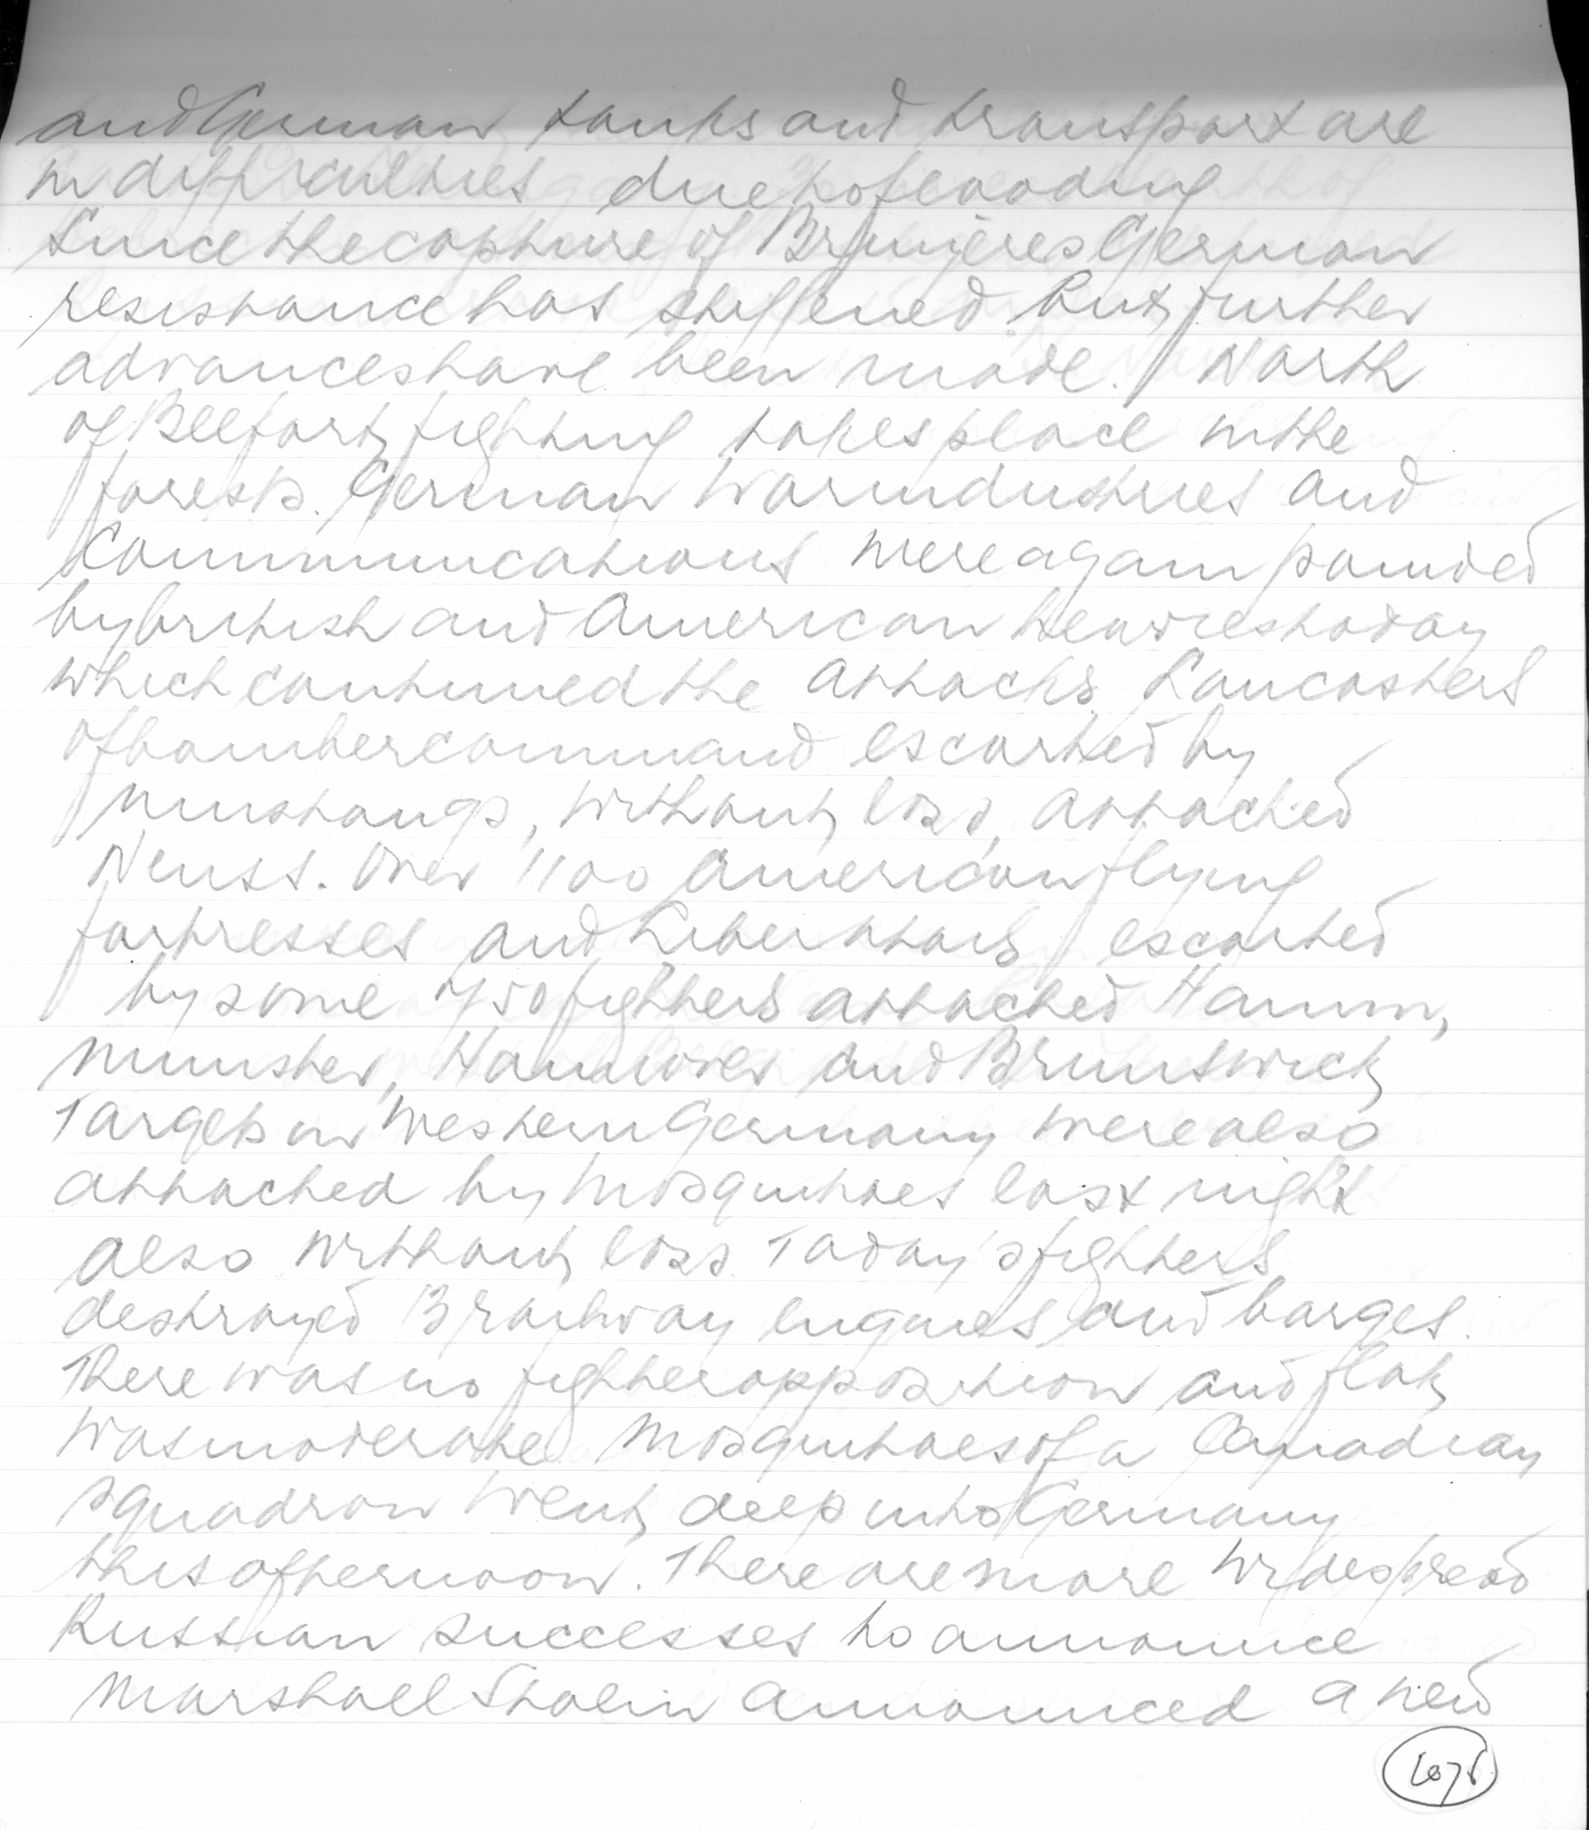 and German tanks and transport are
in difficulties due to flooding
Since the capture of Bruyieres German
resistance has stiffened but further
advances have been made. North
of Belfort fighting takes place in the
forests. German war industries and
Communications were again pounded
by british and American heavies today
which continued the attacks. Lancasters
of bomber command escorted by
mustangs, without loss, attacked
Neuss. Over 1100 American flying
fortresses and Liberators escorted
by some 750 fighters attacked Hamm,
Munster, Hannover and Brunswick
Targets in Western Germany were also
attacked by mosquitoes last night
also without loss. Today's fighters
destroyed 13 railway engines and barges.
There was no fighter opposition and flak
was moderate. Mosquitoes of a Canadian
squadron went deep into Germany
this afternoon. There are more widespread
Russian successes to announce
Marshall Stalin announced a new